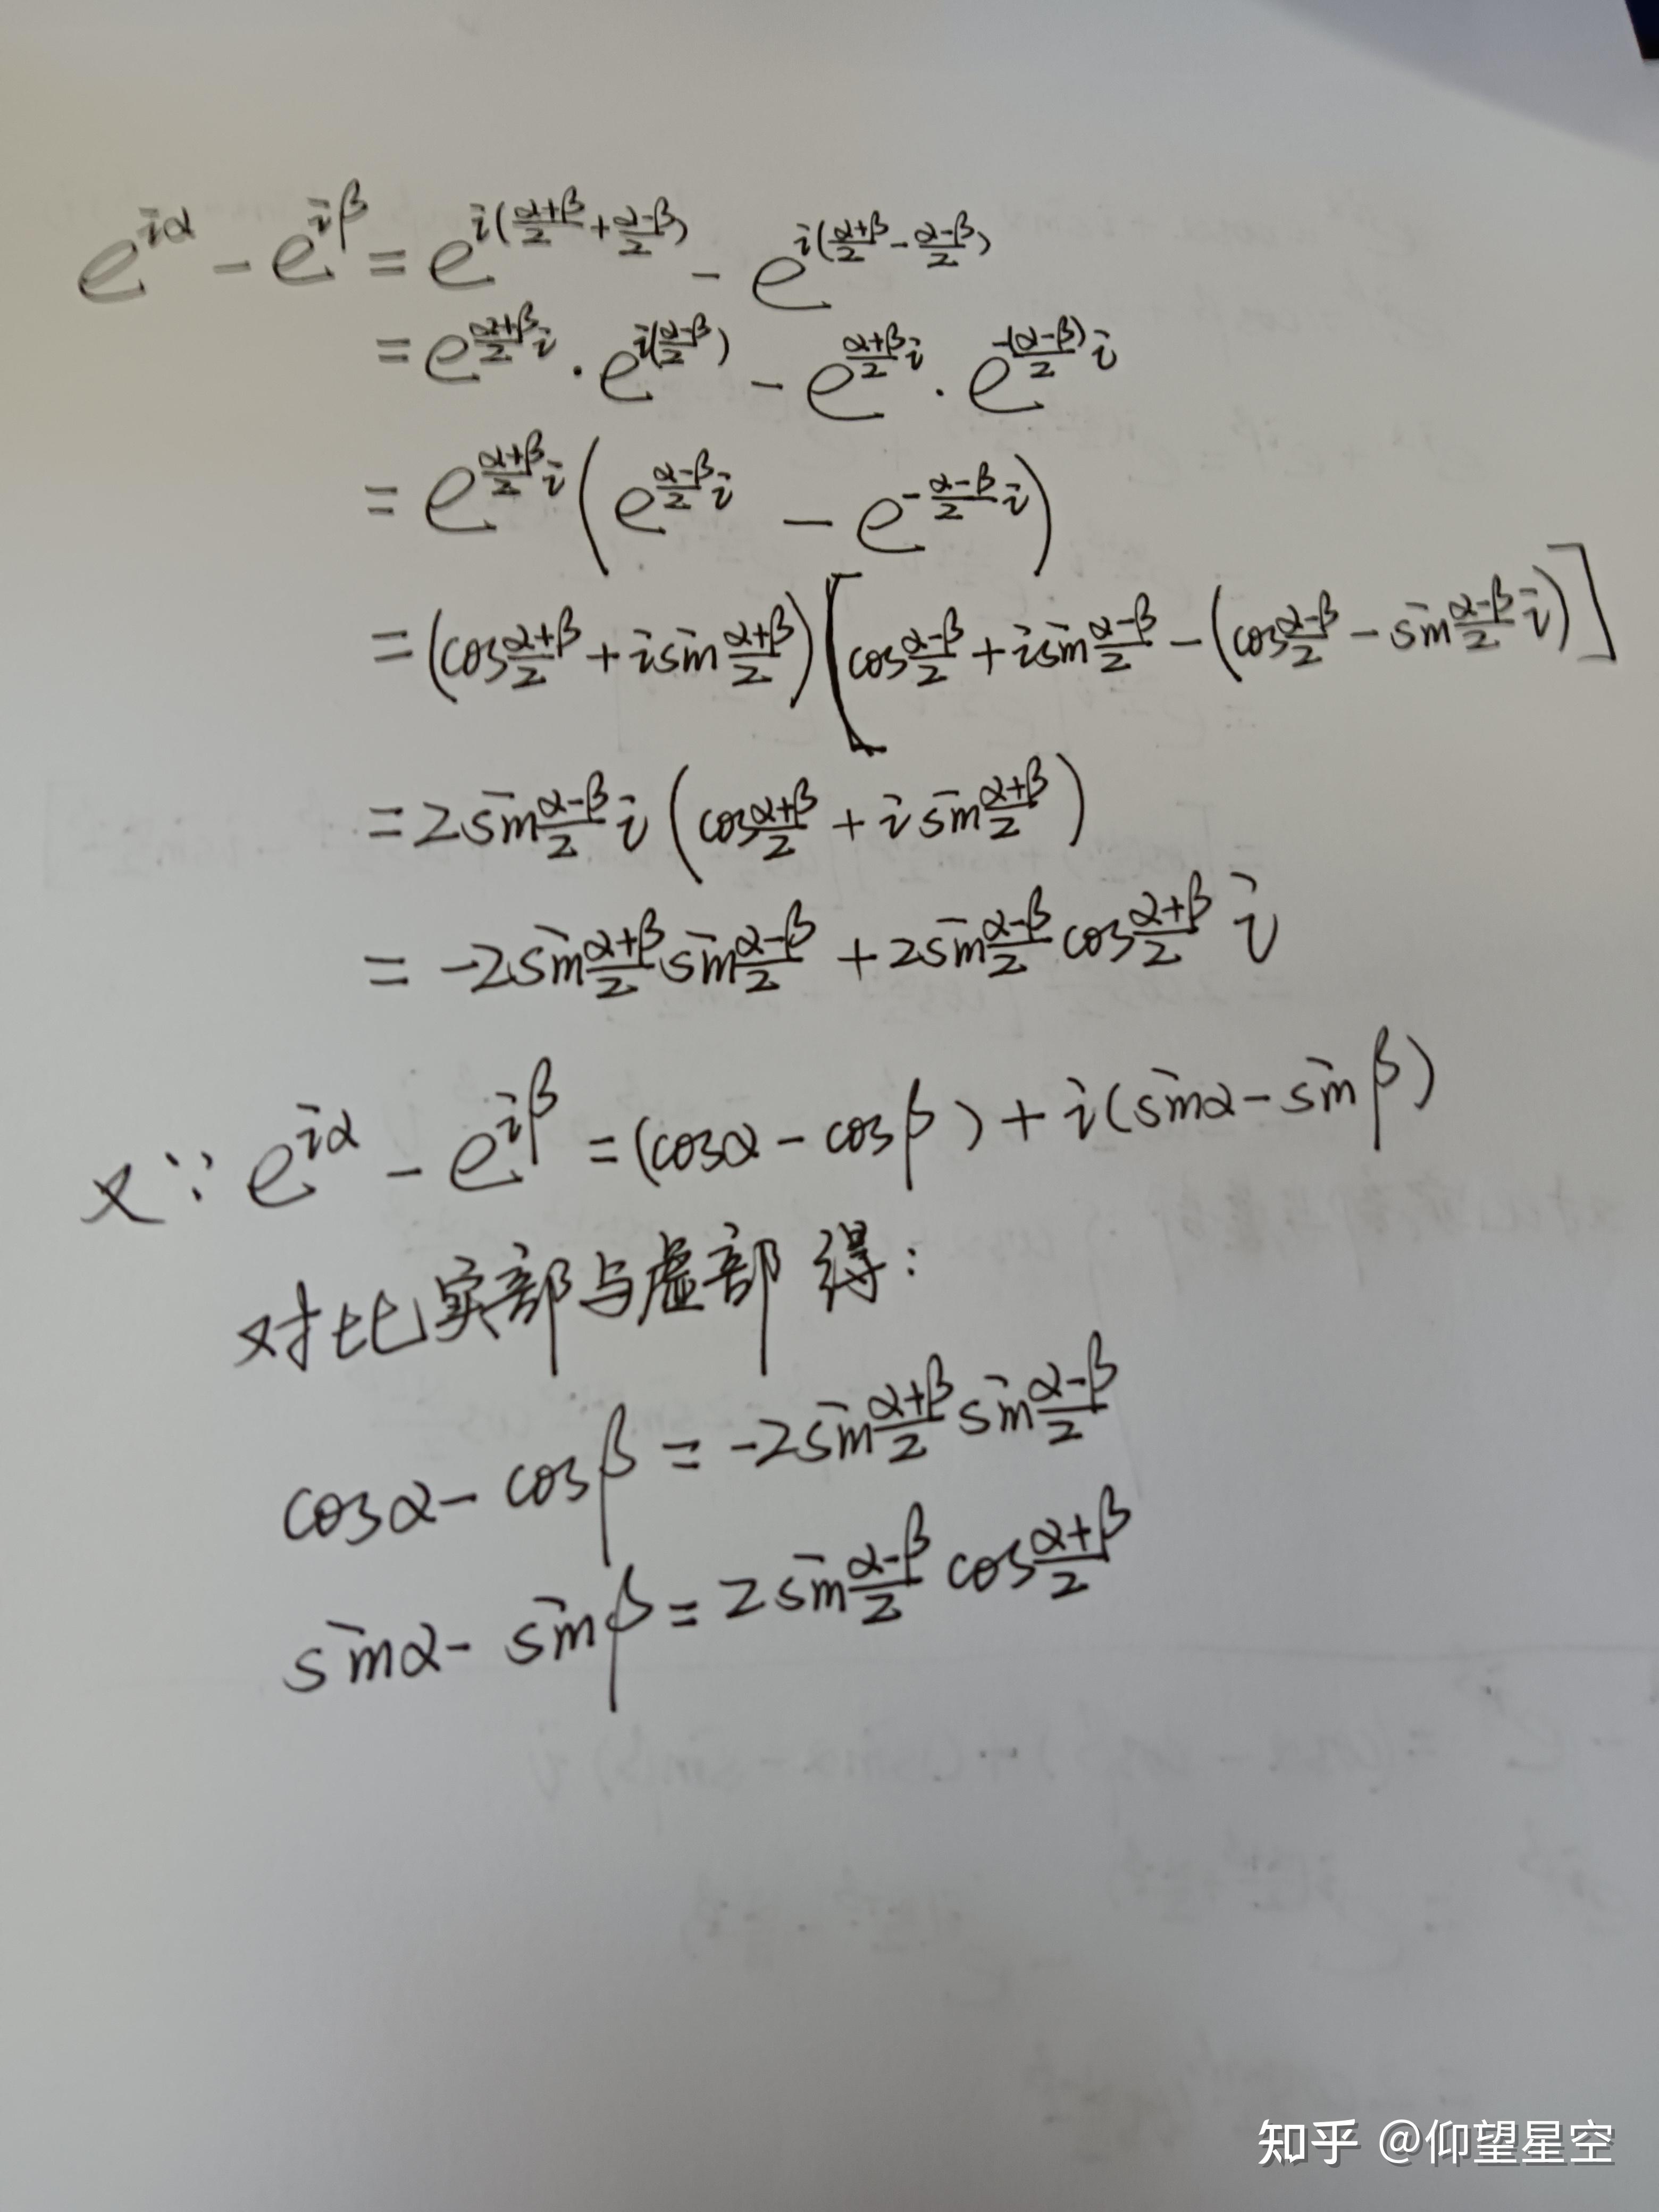 e^{iα} - e^{iβ} = e^{i(\frac{α+β}{2}+\frac{α-β}{2})} - e^{i(\frac{α+β}{2}-\frac{α-β}{2})}
= e^{\frac{α+β}{2}i} · e^{i(\frac{α-β}{2})} - e^{\frac{α+β}{2}i} · e^{\frac{-(α-β)}{2}i}
= e^{\frac{α+β}{2}i} ( e^{\frac{α-β}{2}i} - e^{-\frac{α-β}{2}i} )
= (cos\frac{α+β}{2} + i sin\frac{α+β}{2}) [cos\frac{α-β}{2} + i sin\frac{α-β}{2} - (cos\frac{α-β}{2} - sin\frac{α-β}{2} i)]
= 2 sin\frac{α-β}{2} i (cos\frac{α+β}{2} + i sin\frac{α+β}{2})
= -2 sin\frac{α+β}{2} sin\frac{α-β}{2} + 2 sin\frac{α-β}{2} cos\frac{α+β}{2} i
又∵ e^{iα} - e^{iβ} = (cosα - cosβ) + i(sinα - sinβ)
对比实部与虚部 得:
cosα - cosβ = -2 sin\frac{α+β}{2} sin\frac{α-β}{2}
sinα - sinβ = 2 sin\frac{α-β}{2} cos\frac{α+β}{2}
知乎 @仰望星空